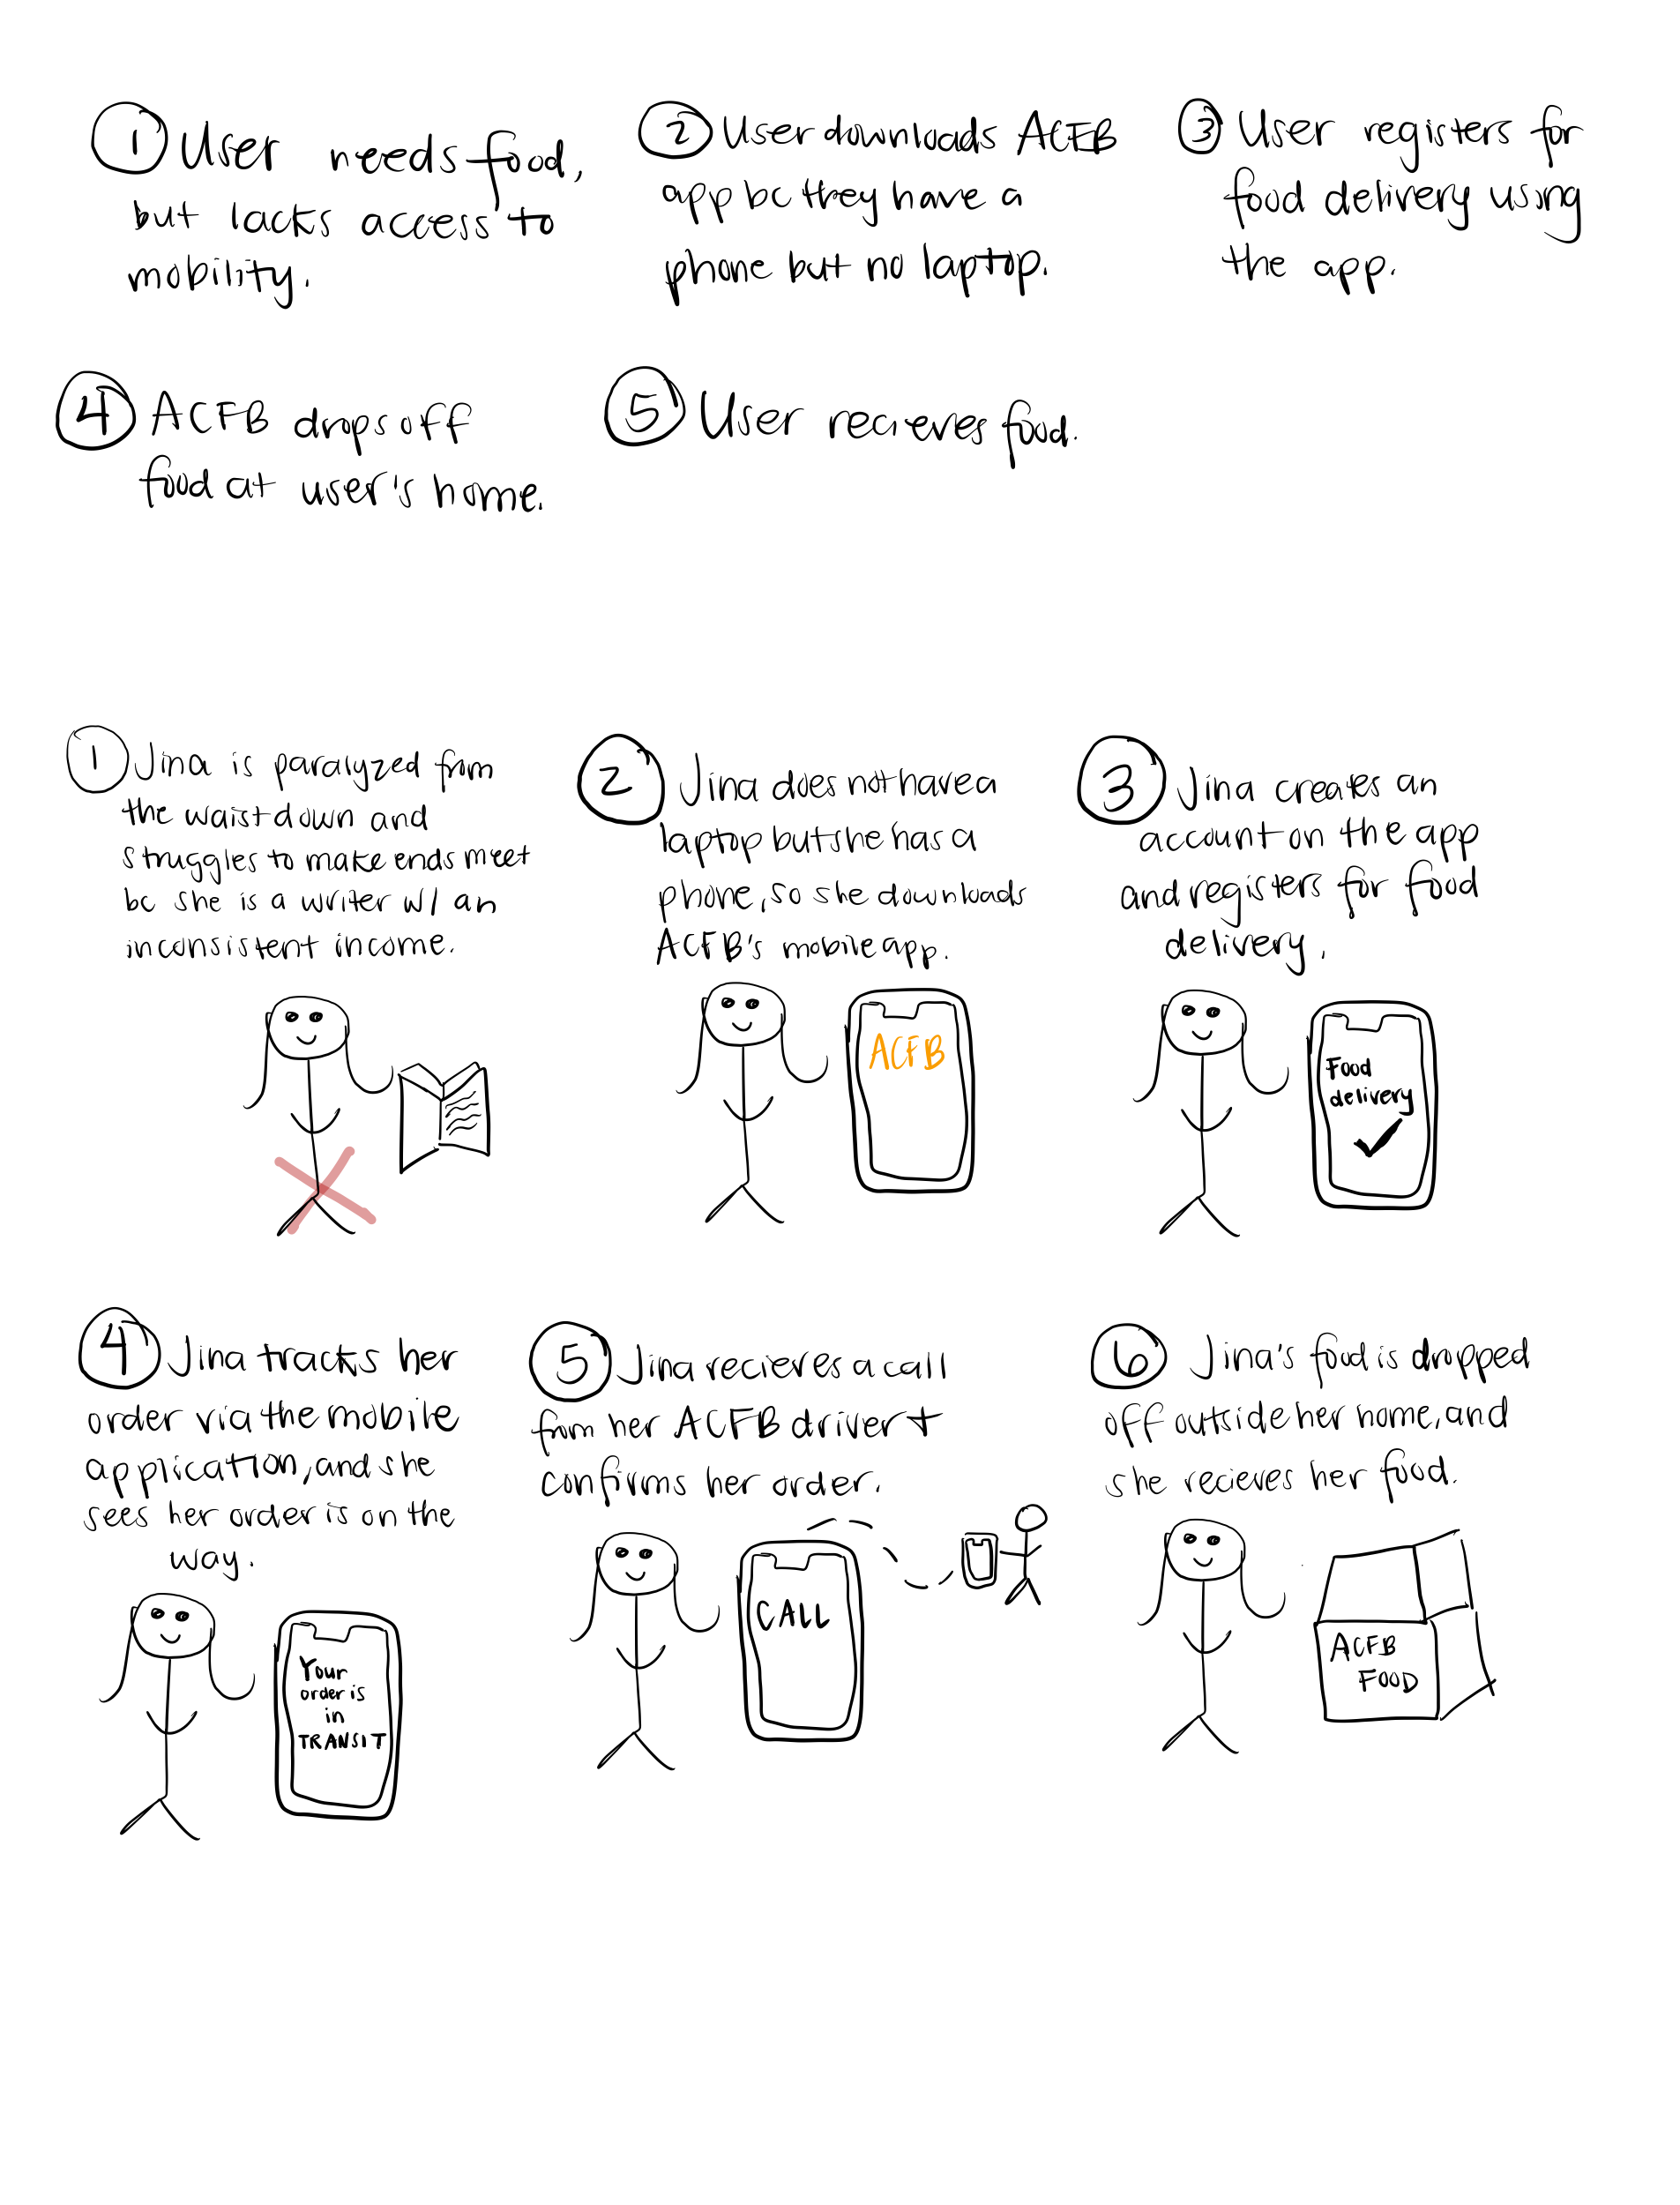 1 User needs food,
but lacks access to
mobility.
2 User downloads ACFB
app bc they have a
phone but no laptop.
3 User registers for
food delivery using
the app.
4 ACFB drops off
food at user's home.
5 User recieves food.
1 Jina is paralyzed from
the waist down and
struggles to make ends meet
bc she is a writer w/ an
inconsistent income.
2 Jina does not have a
laptop but she has a
phone, so she downloads
ACFB's mobile app.
ACFB
3 Jina creates an
account on the app
and registers for food
delivery.
Food
delivery
4 Jina tracks her
order via the mobile
application, and she
sees her order is on the
way.
Your
order is
in
TRANSIT
5 Jina recieves a call
from her ACFB driver +
confirms her order.
CALL
6 Jina's food is dropped
off outside her home, and
she recieves her food.
ACFB
FOOD